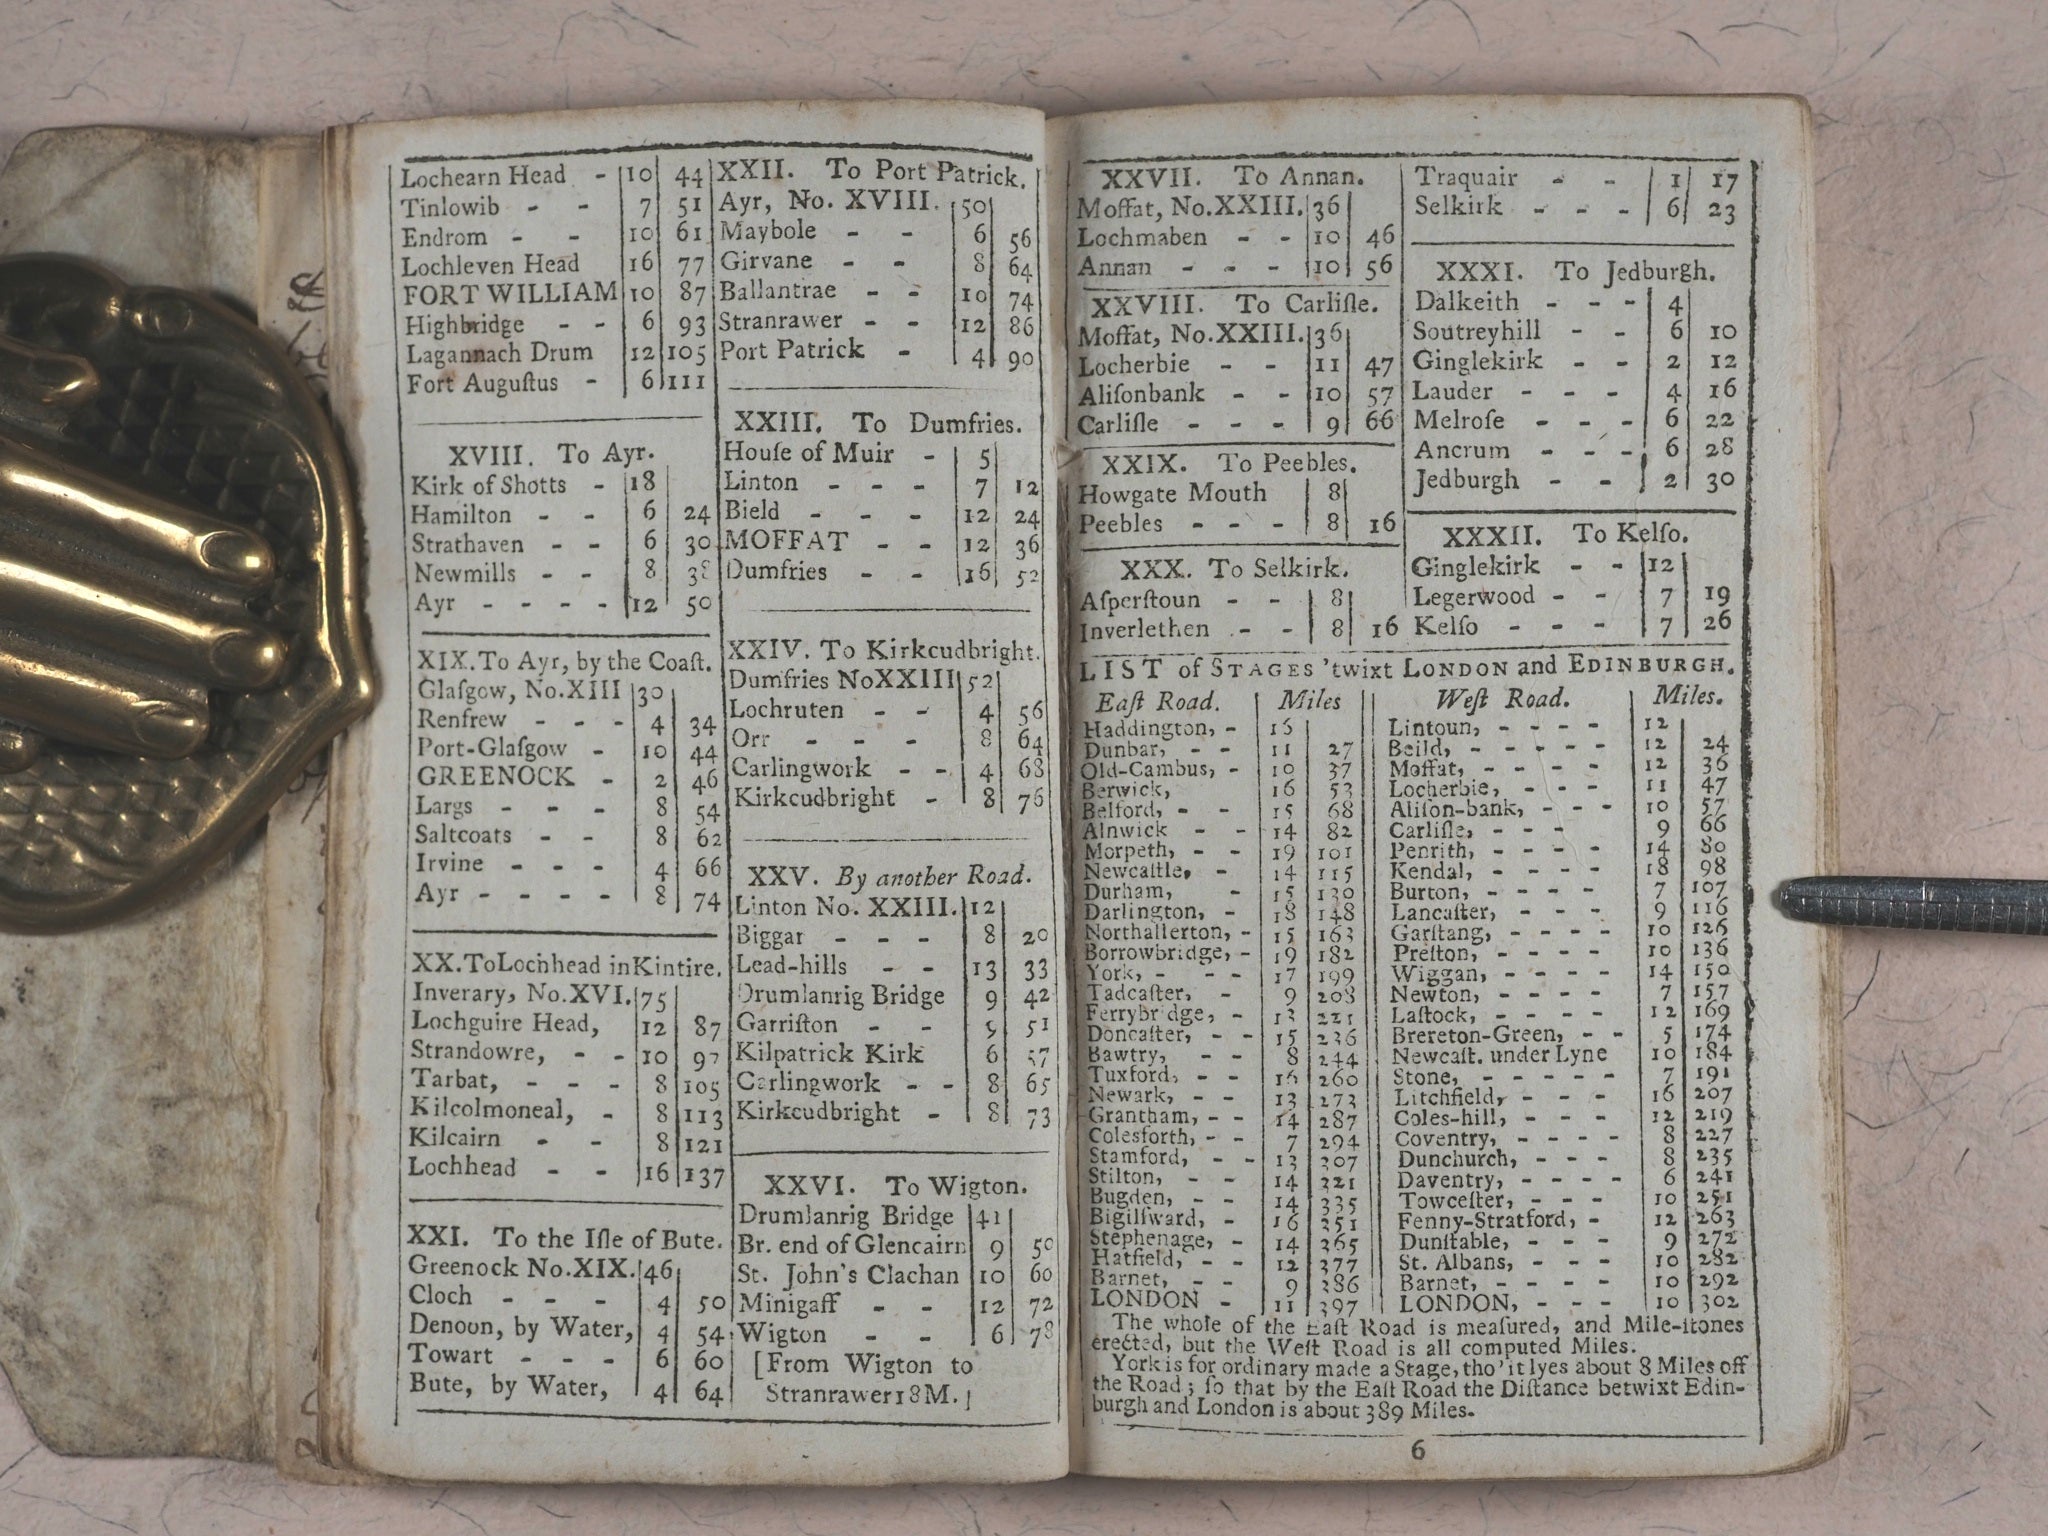 Lochearn Head - 10 44
Tinlowib - - 7 51
Endrom - - 10 61
Lochleven Head 16 77
FORT WILLIAM 10 87
Highbridge - - 6 93
Lagannach Drum 12 105
Fort Auguſtus - 6 111
XVIII. To Ayr.
Kirk of Shotts - 18
Hamilton - - 6 24
Strathaven - - 6 30
Newmills - - 8 38
Ayr - - - - 12 50
XIX. To Ayr, by the Coaſt.
Glaſgow, No. XIII 30
Renfrew - - - 4 34
Port-Glaſgow - 10 44
GREENOCK - 2 46
Largs - - - 8 54
Saltcoats - - 8 62
Irvine - - - 4 66
Ayr - - - - 8 74
XX. To Lochhead in Kintire.
Inverary, No. XVI. 75
Lochguire Head, 12 87
Strandowre, - - 10 97
Tarbat, - - - 8 105
Kilcolmoneal, - 8 113
Kilcairn - - 8 121
Lochhead - - 16 137
XXI. To the Iſle of Bute.
Greenock No. XIX. 46
Cloch - - - 4 50
Denoon, by Water, 4 54
Towart - - - 6 60
Bute, by Water, 4 64
XXII. To Port Patrick.
Ayr, No. XVIII. 50
Maybole - - 6 56
Girvane - - 8 64
Ballantrae - - 10 74
Stranrawer - - 12 86
Port Patrick - 4 90
XXIII. To Dumfries.
Houſe of Muir - 5
Linton - - - 7 12
Bield - - - 12 24
MOFFAT - - 12 36
Dumfries - - 16 52
XXIV. To Kirkcudbright.
Dumfries No XXIII 52
Lochruten - - 4 56
Orr - - - 8 64
Carlingwork - - 4 68
Kirkcudbright - 8 76
XXV. By another Road.
Linton No. XXIII. 12
Biggar - - - 8 20
Lead-hills - - 13 33
Drumlanrig Bridge 9 42
Garriſton - - 9 51
Kilpatrick Kirk 6 57
Carlingwork - - 8 65
Kirkcudbright - 8 73
XXVI. To Wigton.
Drumlanrig Bridge 41
Br. end of Glencairn 9 50
St. John's Clachan 10 60
Minigaff - - 12 72
Wigton - - 6 78
[From Wigton to
Stranrawer 18 M.]
XXVII. To Annan.
Moffat, No. XXIII. 36
Lochmaben - - 10 46
Annan - - - 10 56
XXVIII. To Carliſle.
Moffat, No. XXIII. 36
Locherbie - - 11 47
Aliſonbank - - 10 57
Carliſle - - - 9 66
XXIX. To Peebles.
Howgate Mouth 8
Peebles - - - 8 16
XXX. To Selkirk.
Aſperſtoun - - 8
Inverlethen - - 8 16
Traquair - - 1 17
Selkirk - - - 6 23
XXXI. To Jedburgh.
Dalkeith - - - 4
Soutreyhill - - 6 10
Ginglekirk - - 2 12
Lauder - - - 4 16
Melroſe - - - 6 22
Ancrum - - - 6 28
Jedburgh - - 2 30
XXXII. To Kelſo.
Ginglekirk - - 12
Legerwood - - 7 19
Kelſo - - - 7 26
LIST of STAGES 'twixt LONDON and EDINBURGH.
Eaſt Road. Miles
Haddington, - 16
Dunbar, - - 11 27
Old-Cambus, - 10 37
Berwick, 16 53
Belford, - - 15 68
Alnwick - - 14 82
Morpeth, - - 19 101
Newcaſtle, - 14 115
Durham, - 15 130
Darlington, - 18 148
Northallerton, - 15 163
Borrowbridge, - 19 182
York, - - - 17 199
Tadcaſter, - 9 208
Ferrybridge, - 13 221
Doncaſter, - - 15 236
Bawtry, - - 8 244
Tuxford, - - 16 260
Newark, - - 13 273
Grantham, - - 14 287
Colesforth, - - 7 294
Stamford, - - 13 307
Stilton, - - 14 321
Bugden, - - 14 335
Bigilſward, - 16 351
Stephenage, - 14 365
Hatfield, - - 12 377
Barnet, - - 9 386
LONDON - 11 397
Weſt Road. Miles.
Lintoun, - - - - 12
Beild, - - - - - 12 24
Moffat, - - - - 12 36
Locherbie, - - - 11 47
Aliſon-bank, - - - 10 57
Carliſle, - - - 9 66
Penrith, - - - - 14 80
Kendal, - - - - 18 98
Burton, - - - - 7 107
Lancaſter, - - - 9 116
Garſtang, - - - - 10 126
Preſton, - - - - 10 136
Wiggan, - - - - 14 150
Newton, - - - - 7 157
Laſtock, - - - - 12 169
Brereton-Green, - - 5 174
Newcaſt. under Lyne 10 184
Stone, - - - - - 7 191
Litchfield, - - - 16 207
Coles-hill, - - - 12 219
Coventry, - - - - 8 227
Dunchurch, - - - 8 235
Daventry, - - - - 6 241
Towceſter, - - - 10 251
Fenny-Stratford, - 12 263
Dunſtable, - - - 9 272
St. Albans, - - - 10 282
Barnet, - - - - 10 292
LONDON, - - - 10 302
The whole of the Eaſt Road is meaſured, and Mile-ſtones
erected, but the Weſt Road is all computed Miles.
York is for ordinary made a Stage, tho' it lyes about 8 Miles off
the Road; ſo that by the Eaſt Road the Diſtance betwixt Edin-
burgh and London is about 389 Miles.
6